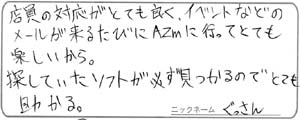 店員の対応がとても良く、イベントなどの
メールが来るたびにAZmに行ってとても
楽しいから。
探していたソフトが必ず見つかるのでとても
助かる。
ニックネーム ぐっさん